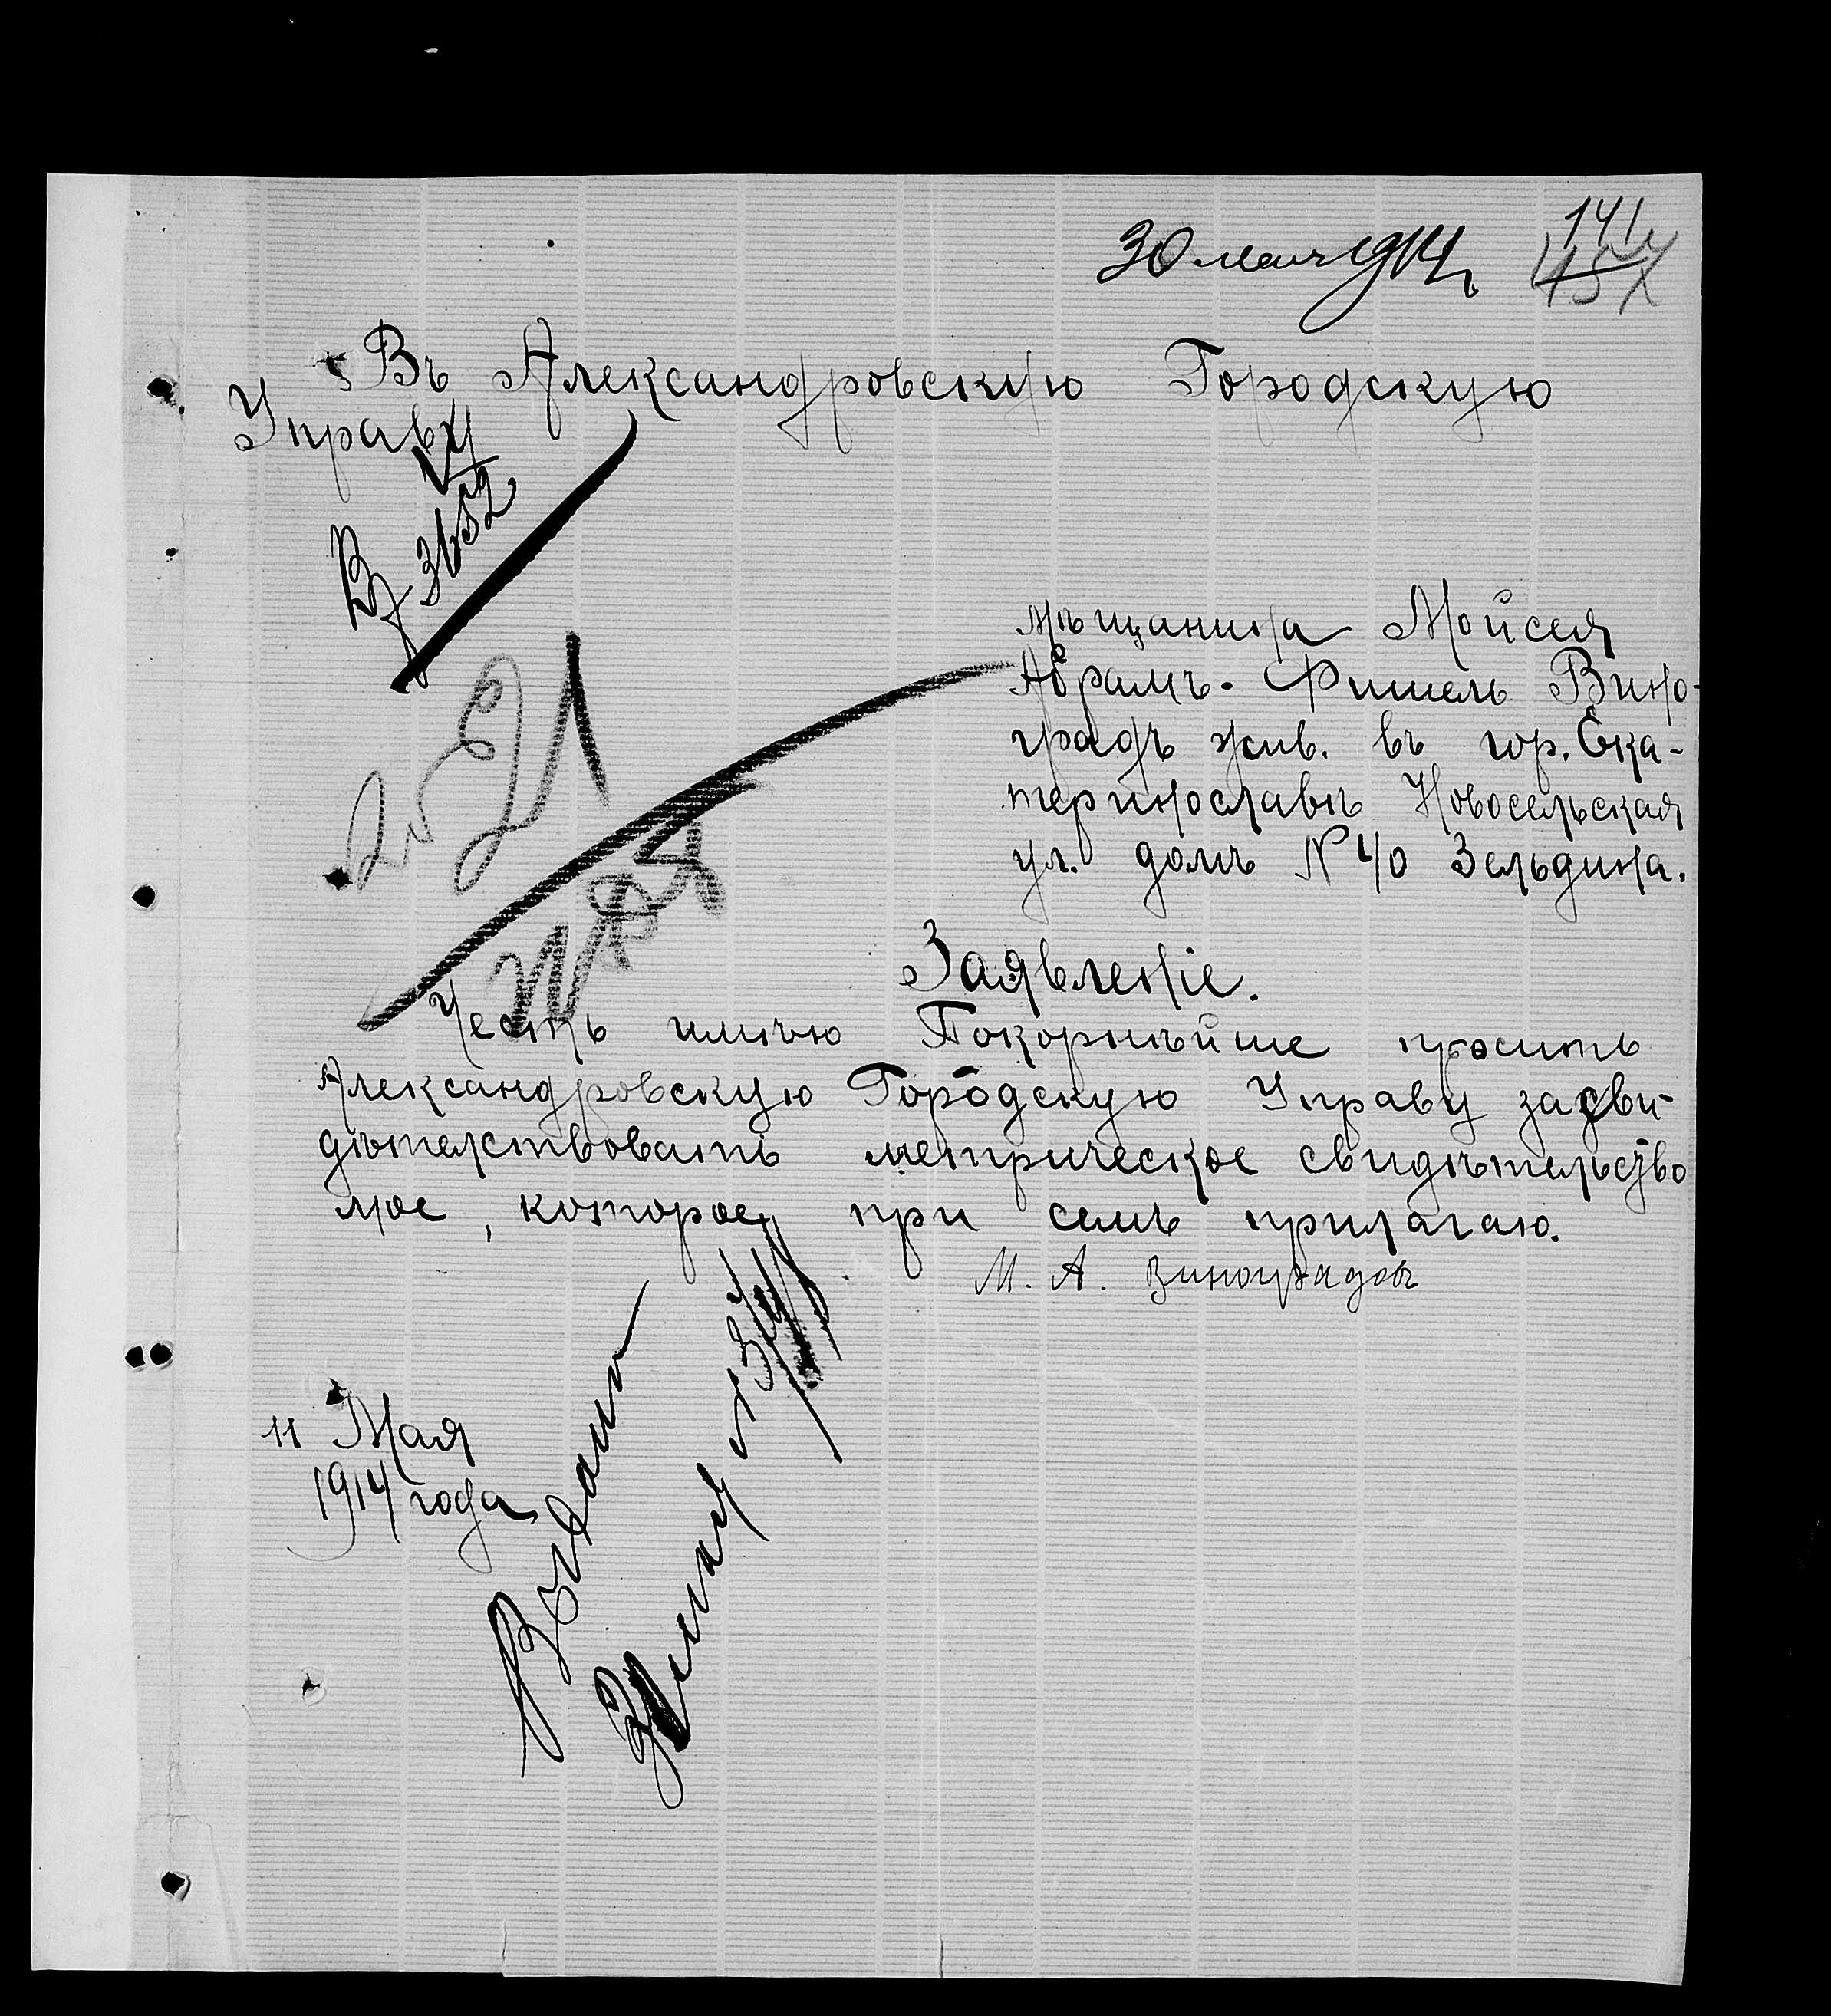 30 мая 1914 г.
141
Въ Александровскую Городскую
Управу
Вх 3652
мѣщанина Мойсея
Абрамъ-Фишель Вино-
градъ жив. въ гор. Ека-
теринославѣ Новосельская
ул. домъ № 40 Зельдина.
Заявленіе.
Честь имѣю Покорнѣйше просить
Александровскую Городскую Управу засви-
дѣтелствовать метрическое свидѣтельство
мое, которое при семъ прилагаю.
М. А. Виноградовъ
11 Мая
1914 года